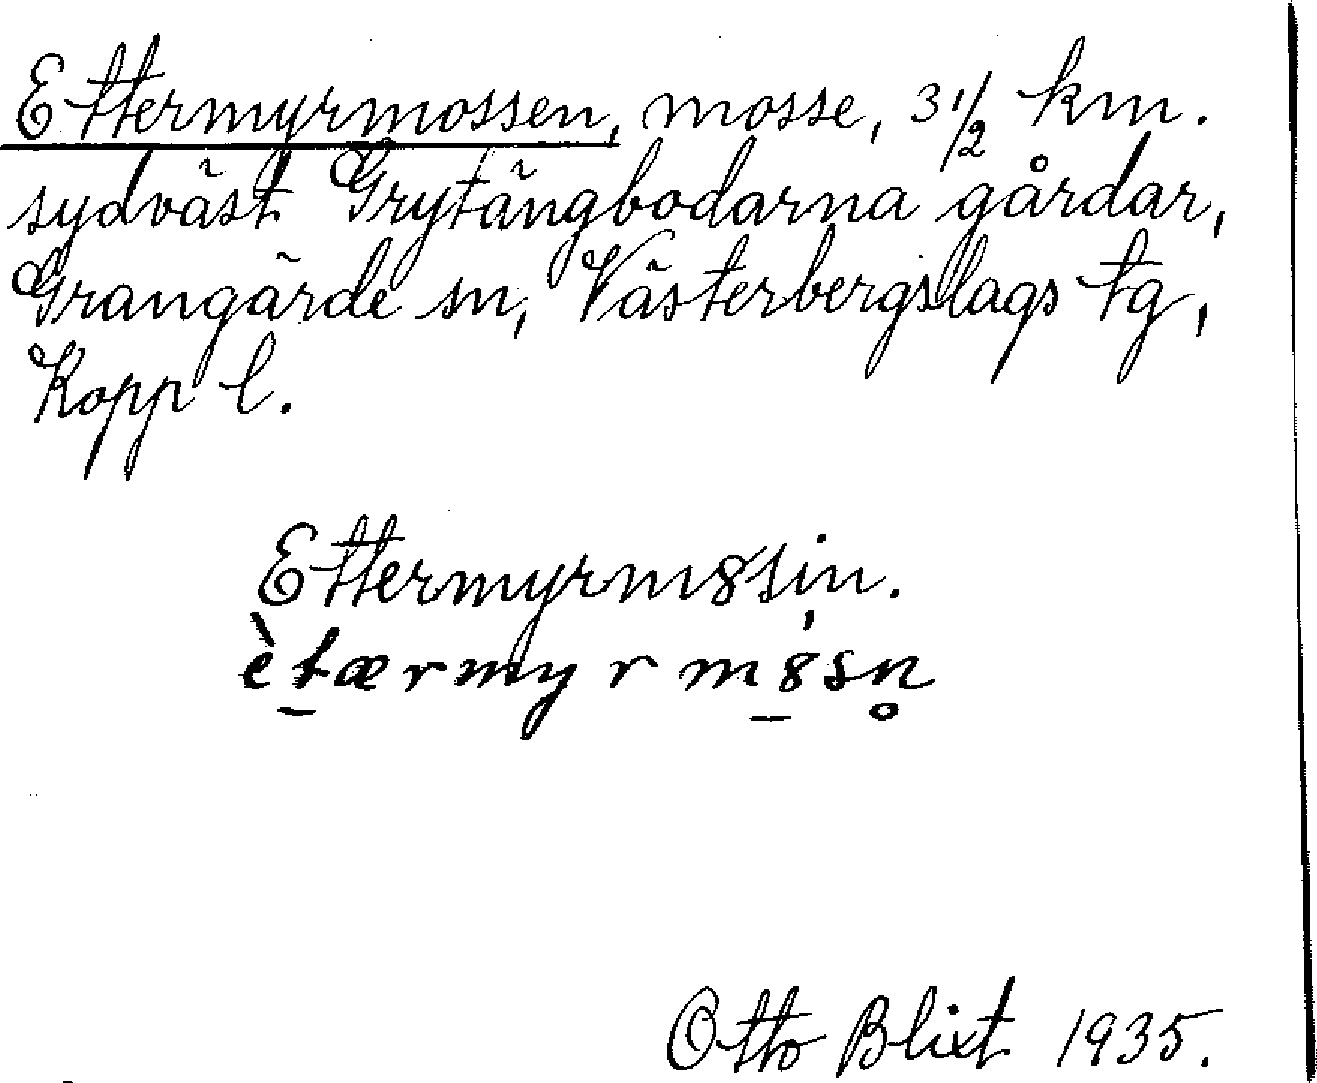 Ettermyrmossen, mosse, 3 1/2 km.
sydväst Grytängbodarna gårdar,
Grangärde sn, Västerbergslags tg,
Kopp l.
Ettermyrm8sin.
ètærmyrm8sn̥
Otto Blixt 1935.